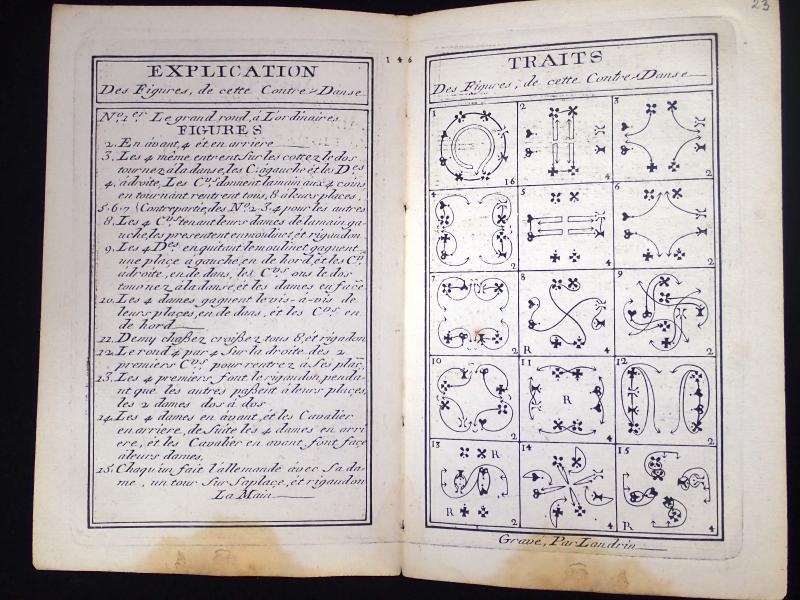 146
EXPLICATION
Des Figures, de cette Contre-Danse
No. 1er. Le grand rond, à L'ordinaires
FIGURES
2. En avant, 4 et en arriere
3. Les 4 même entrent Sur les cottez le dos
tournez à la danse, les Cs. à gauche et les Des.
4. à droite, Les Crs. donnent la main aux 4 coins,
en tournant rentrent tous, 8 à leurs places,
5. 6. 7. Contrepartie, des No. 2. 3. 4 pour les autres
8. Les 4 Crs. tenant leurs dames de la main ga-
uche, les presentent en moulinet, et rigaudon
9. Les 4 Des. en quitant le moulinet gagnent
une place à gauche, en de hord, et les Crs.
à droite, en de dans, les Crs. ons le dos
tournez à la danse, et les dames en face
10. Les 4 dames gagnent le vis-à-vis de
leurs places, en de dans, et les Crs. en
de hord
11. Demy chaßez croißez tous 8, et rigadon
12. Le rond 4 par 4 Sur la droite des 2
premiers Crs. pour rentrez à Ses plac.
13. Les 4 premiers, font le rigaudon penda-
nt que les autres paßent à leurs places,
les 2 dames dos à dos
14. Les 4 dames en avant, et les Cavalier
en arriere, de Suite les 4 dames en arri
ere, et les Cavalier en avant font face
à leurs dames,
15. Chaqu'un fait l'allemande avec Sa da-
me, un tour Sur Sa place, et rigaudon
La Main
23
TRAITS
Des Figures, de cette Contre-Danse
1 16
2 4
3 2
4 2
5 4
6 2
7 2
8 R 4
9 2
10 2
11 R 4
12 2
13 R R 2
14 4
15 R 4
Gravé, Par Landrin